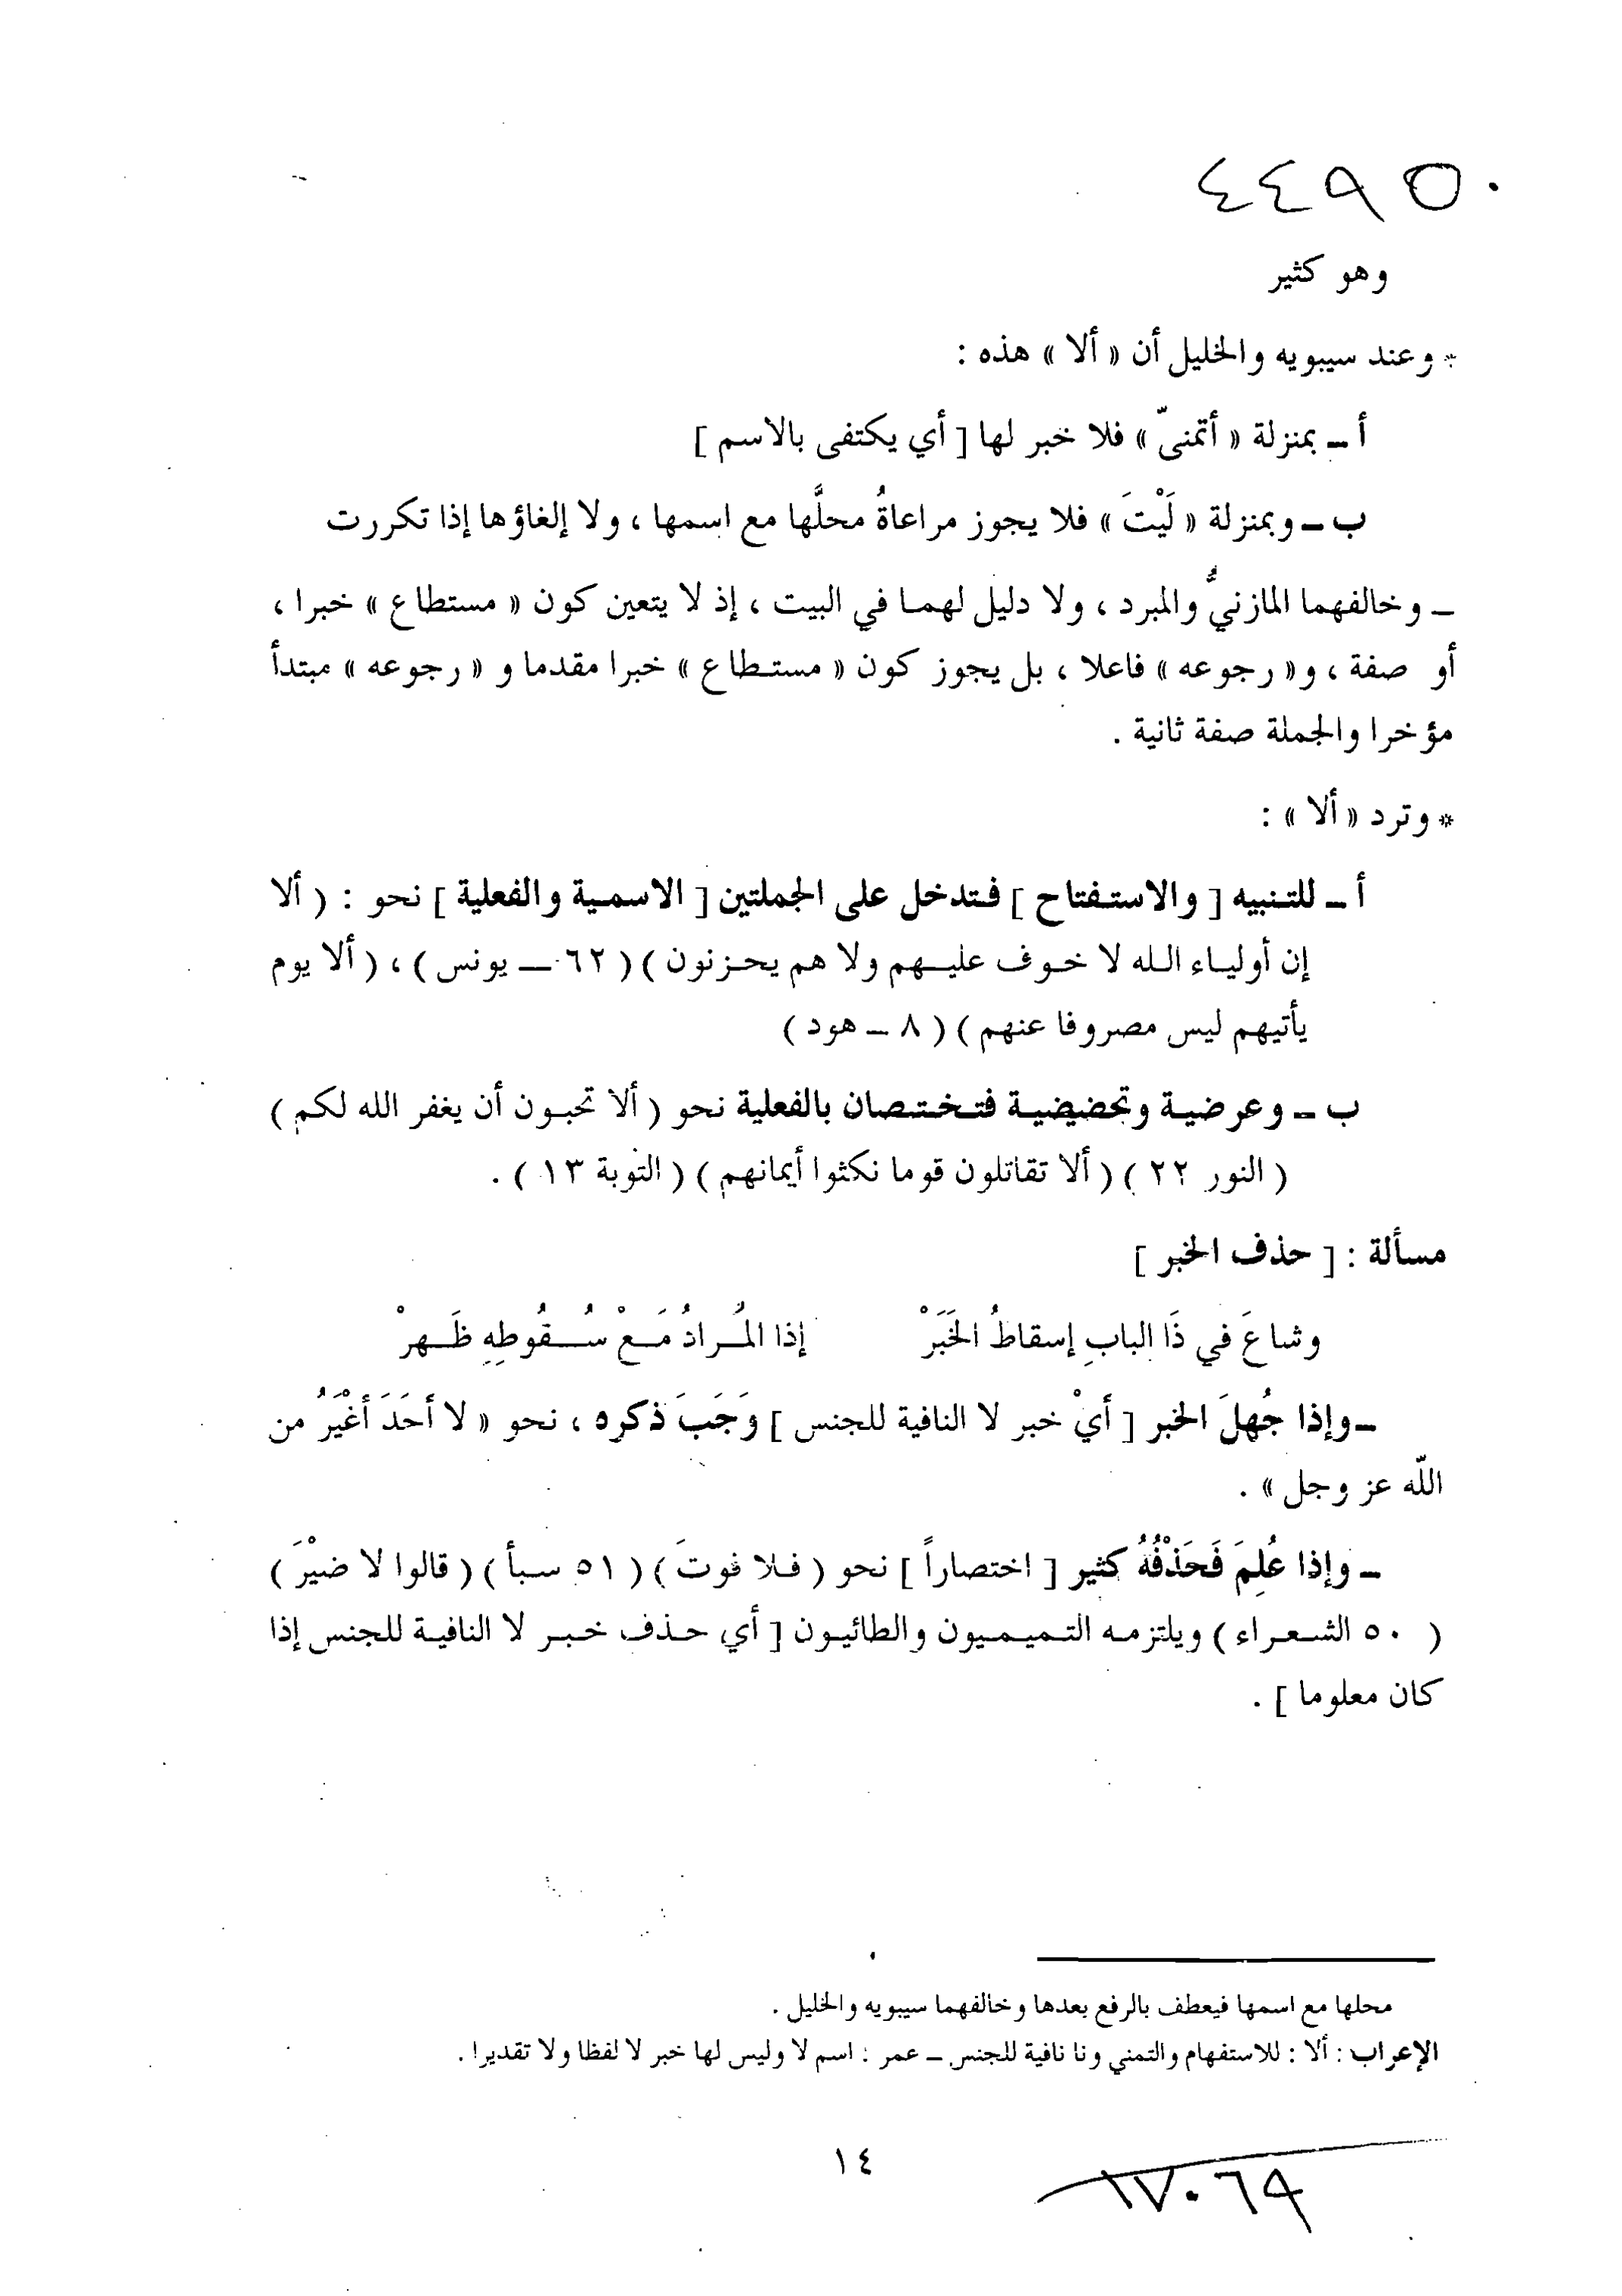 ٤٤٩٥٠
وهو كثير
* وعند سيبويه والخليل أن « ألا » هذه :
أ ــ بمنزلة « أتمنىّ » فلا خبر لها [ أي يكتفى بالاسم ]
ب ــ وبمنزلة « لَيْتَ » فلا يجوز مراعاةُ محلَّها مع اسمها ، ولا إلغاؤها إذا تكررت
ــ وخالفهما المازنيُّ والمبرد ، ولا دليل لهما في البيت ، إذ لا يتعين كون « مستطاع » خبرا ،
أو صفة ، و« رجوعه » فاعلا ، بل يجوز كون « مستطاع » خبرا مقدما و « رجوعه » مبتدأ
مؤخرا والجملة صفة ثانية .
* وترد « ألا » :
أ ــ للتنبيه [ والاستفتاح ] فتدخل على الجملتين [ الاسمية والفعلية ] نحو : ( ألا
إن أولياء الله لا خوف عليهم ولا هم يحزنون ) ( ٦٢ ــ يونس ) ، ( ألا يوم
يأتيهم ليس مصروفا عنهم ) ( ٨ ــ هود )
ب ــ وعرضية وتحضيضية فتختصان بالفعلية نحو ( ألا تحبون أن يغفر الله لكم )
( النور ٢٢ ) ( ألا تقاتلون قوما نكثوا أيمانهم ) ( التوبة ١٣ ) .
مسألة : [ حذف الخبر ]
وشاعَ في ذَا البابِ إسقاطُ الخَبَرْ إذا المُرادُ مَعْ سُقُوطِهِ ظَهرْ
ــ وإذا جُهلَ الخبر [ أيْ خبر لا النافية للجنس ] وَجَبَ ذكره ، نحو « لا أحَدَ أغْيَرُ من
اللّه عز وجل » .
ــ وإذا عُلِمَ فَحَذْفُهُ كثير [ اختصاراً ] نحو ( فلا فوتَ ) ( ٥١ سبأ ) ( قالوا لا ضيْرَ )
( ٥٠ الشعراء ) ويلتزمه التميميون والطائيون [ أي حذف خبر لا النافية للجنس إذا
كان معلوما ] .
محلها مع اسمها فيعطف بالرفع بعدها وخالفهما سيبويه والخليل .
الإعراب : ألا : للاستفهام والتمني ونا نافية للجنس ــ عمر : اسم لا وليس لها خبر لا لفظا ولا تقديرا .
١٤
١٧٠٦٩